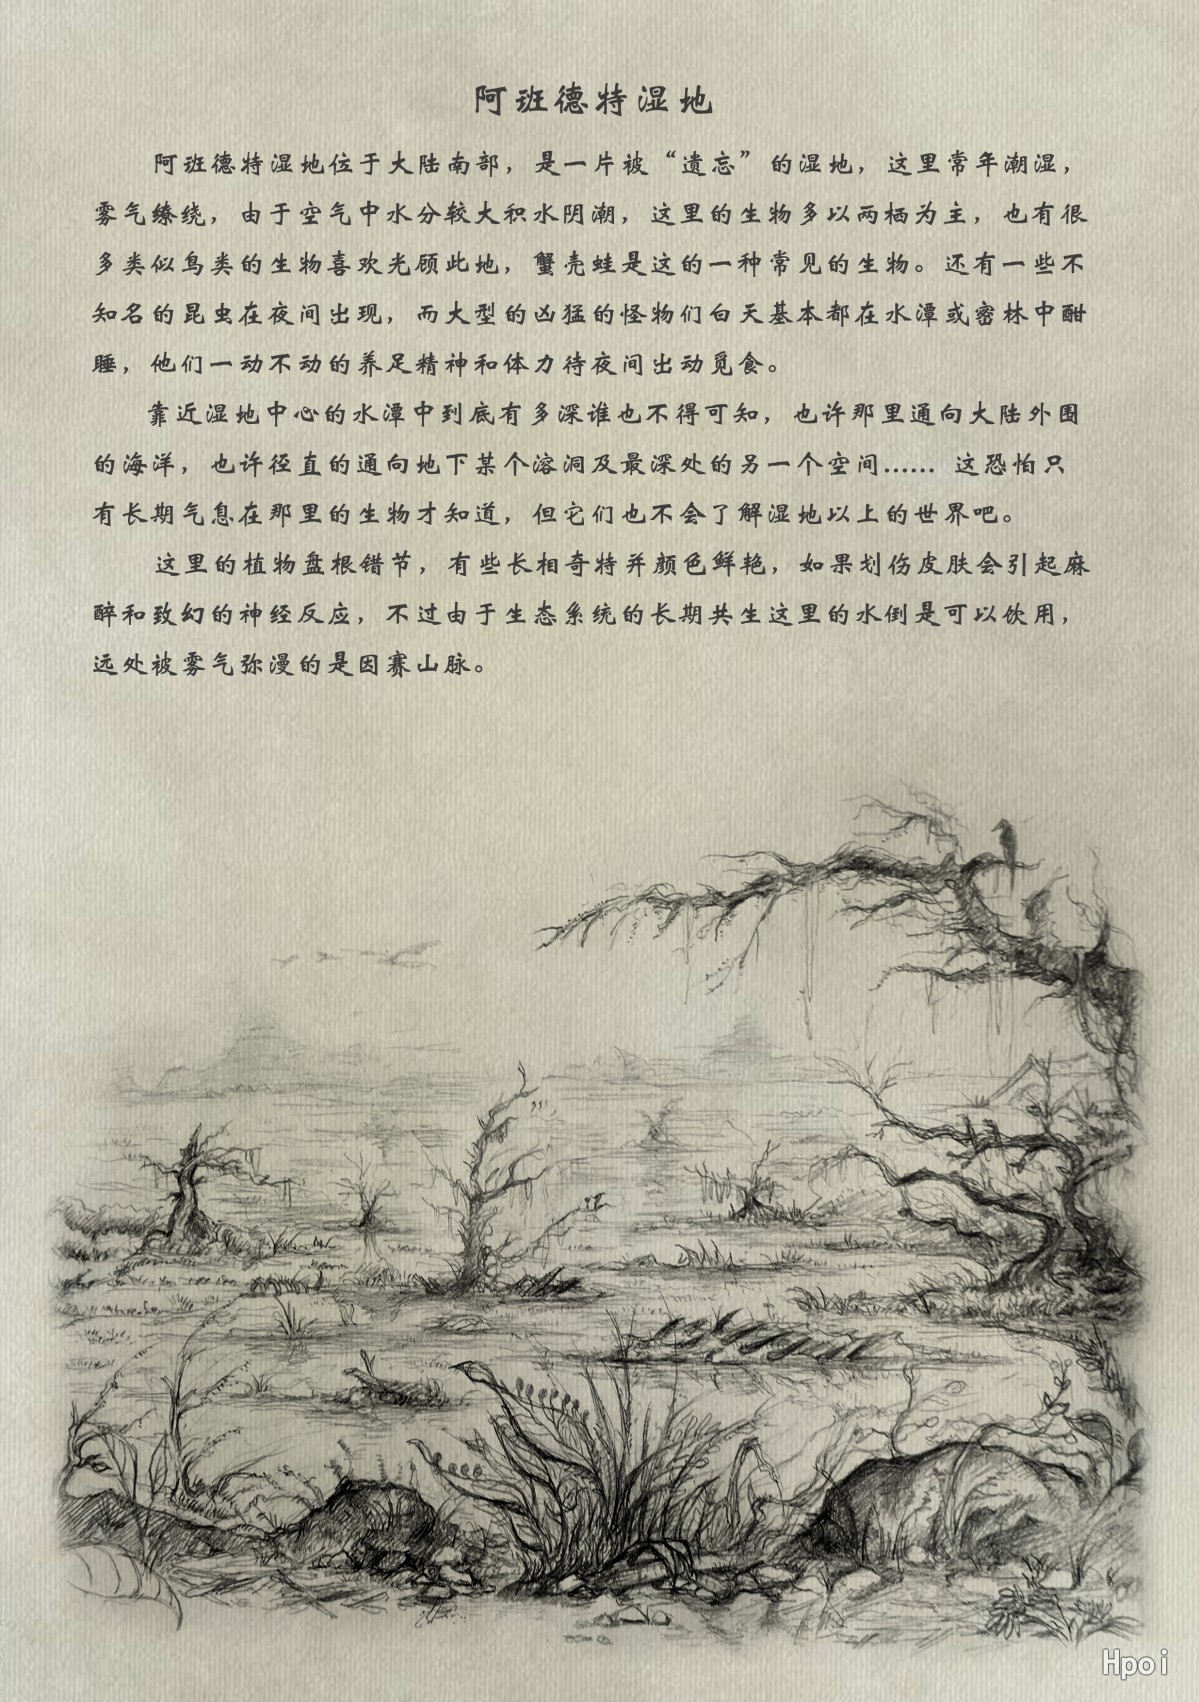 阿班德特湿地
阿班德特湿地位于大陆南部，是一片被“遗忘”的湿地，这里常年潮湿，
雾气缭绕，由于空气中水分较大积水阴潮，这里的生物多以两栖为主，也有很
多类似鸟类的生物喜欢光顾此地，蟹壳蛙是这的一种常见的生物。还有一些不
知名的昆虫在夜间出现，而大型的凶猛的怪物们白天基本都在水潭或密林中酣
睡，他们一动不动的养足精神和体力待夜间出动觅食。
靠近湿地中心的水潭中到底有多深谁也不得可知，也许那里通向大陆外围
的海洋，也许径直的通向地下某个溶洞及最深处的另一个空间...... 这恐怕只
有长期气息在那里的生物才知道，但它们也不会了解湿地以上的世界吧。
这里的植物盘根错节，有些长相奇特并颜色鲜艳，如果划伤皮肤会引起麻
醉和致幻的神经反应，不过由于生态系统的长期共生这里的水倒是可以饮用，
远处被雾气弥漫的是因赛山脉。
Hpoi